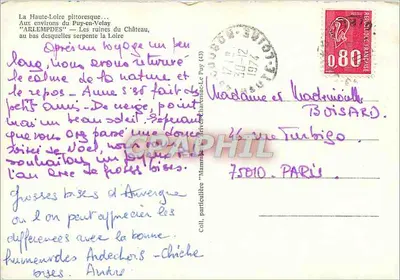 La Haute-Loire pittoresque...
Aux environs du Puy-en-Velay
"ARLEMPDES" — Les ruines du Château,
au bas desquelles serpente la Loire
Après un voyage un peu
long, nous avons retrouvé
le calme de la nature et
le repos - Anne s'est fait des
petits amis - De neige, point
mais un beau soleil. Espérant
que vous avez passé une douce
soirée de Noël, nous vous
souhaitons un joyeux
l'an avec de grosses bises.
Grosses bises d'Auvergne
où l'on peut apprécier les
différences avec la bonne
humeur des Ardéchois -
bises. André
0,80
Madame et Mademoiselle
BOISARD
rue Turbigo
75010 - PARIS.
GRAPHIL